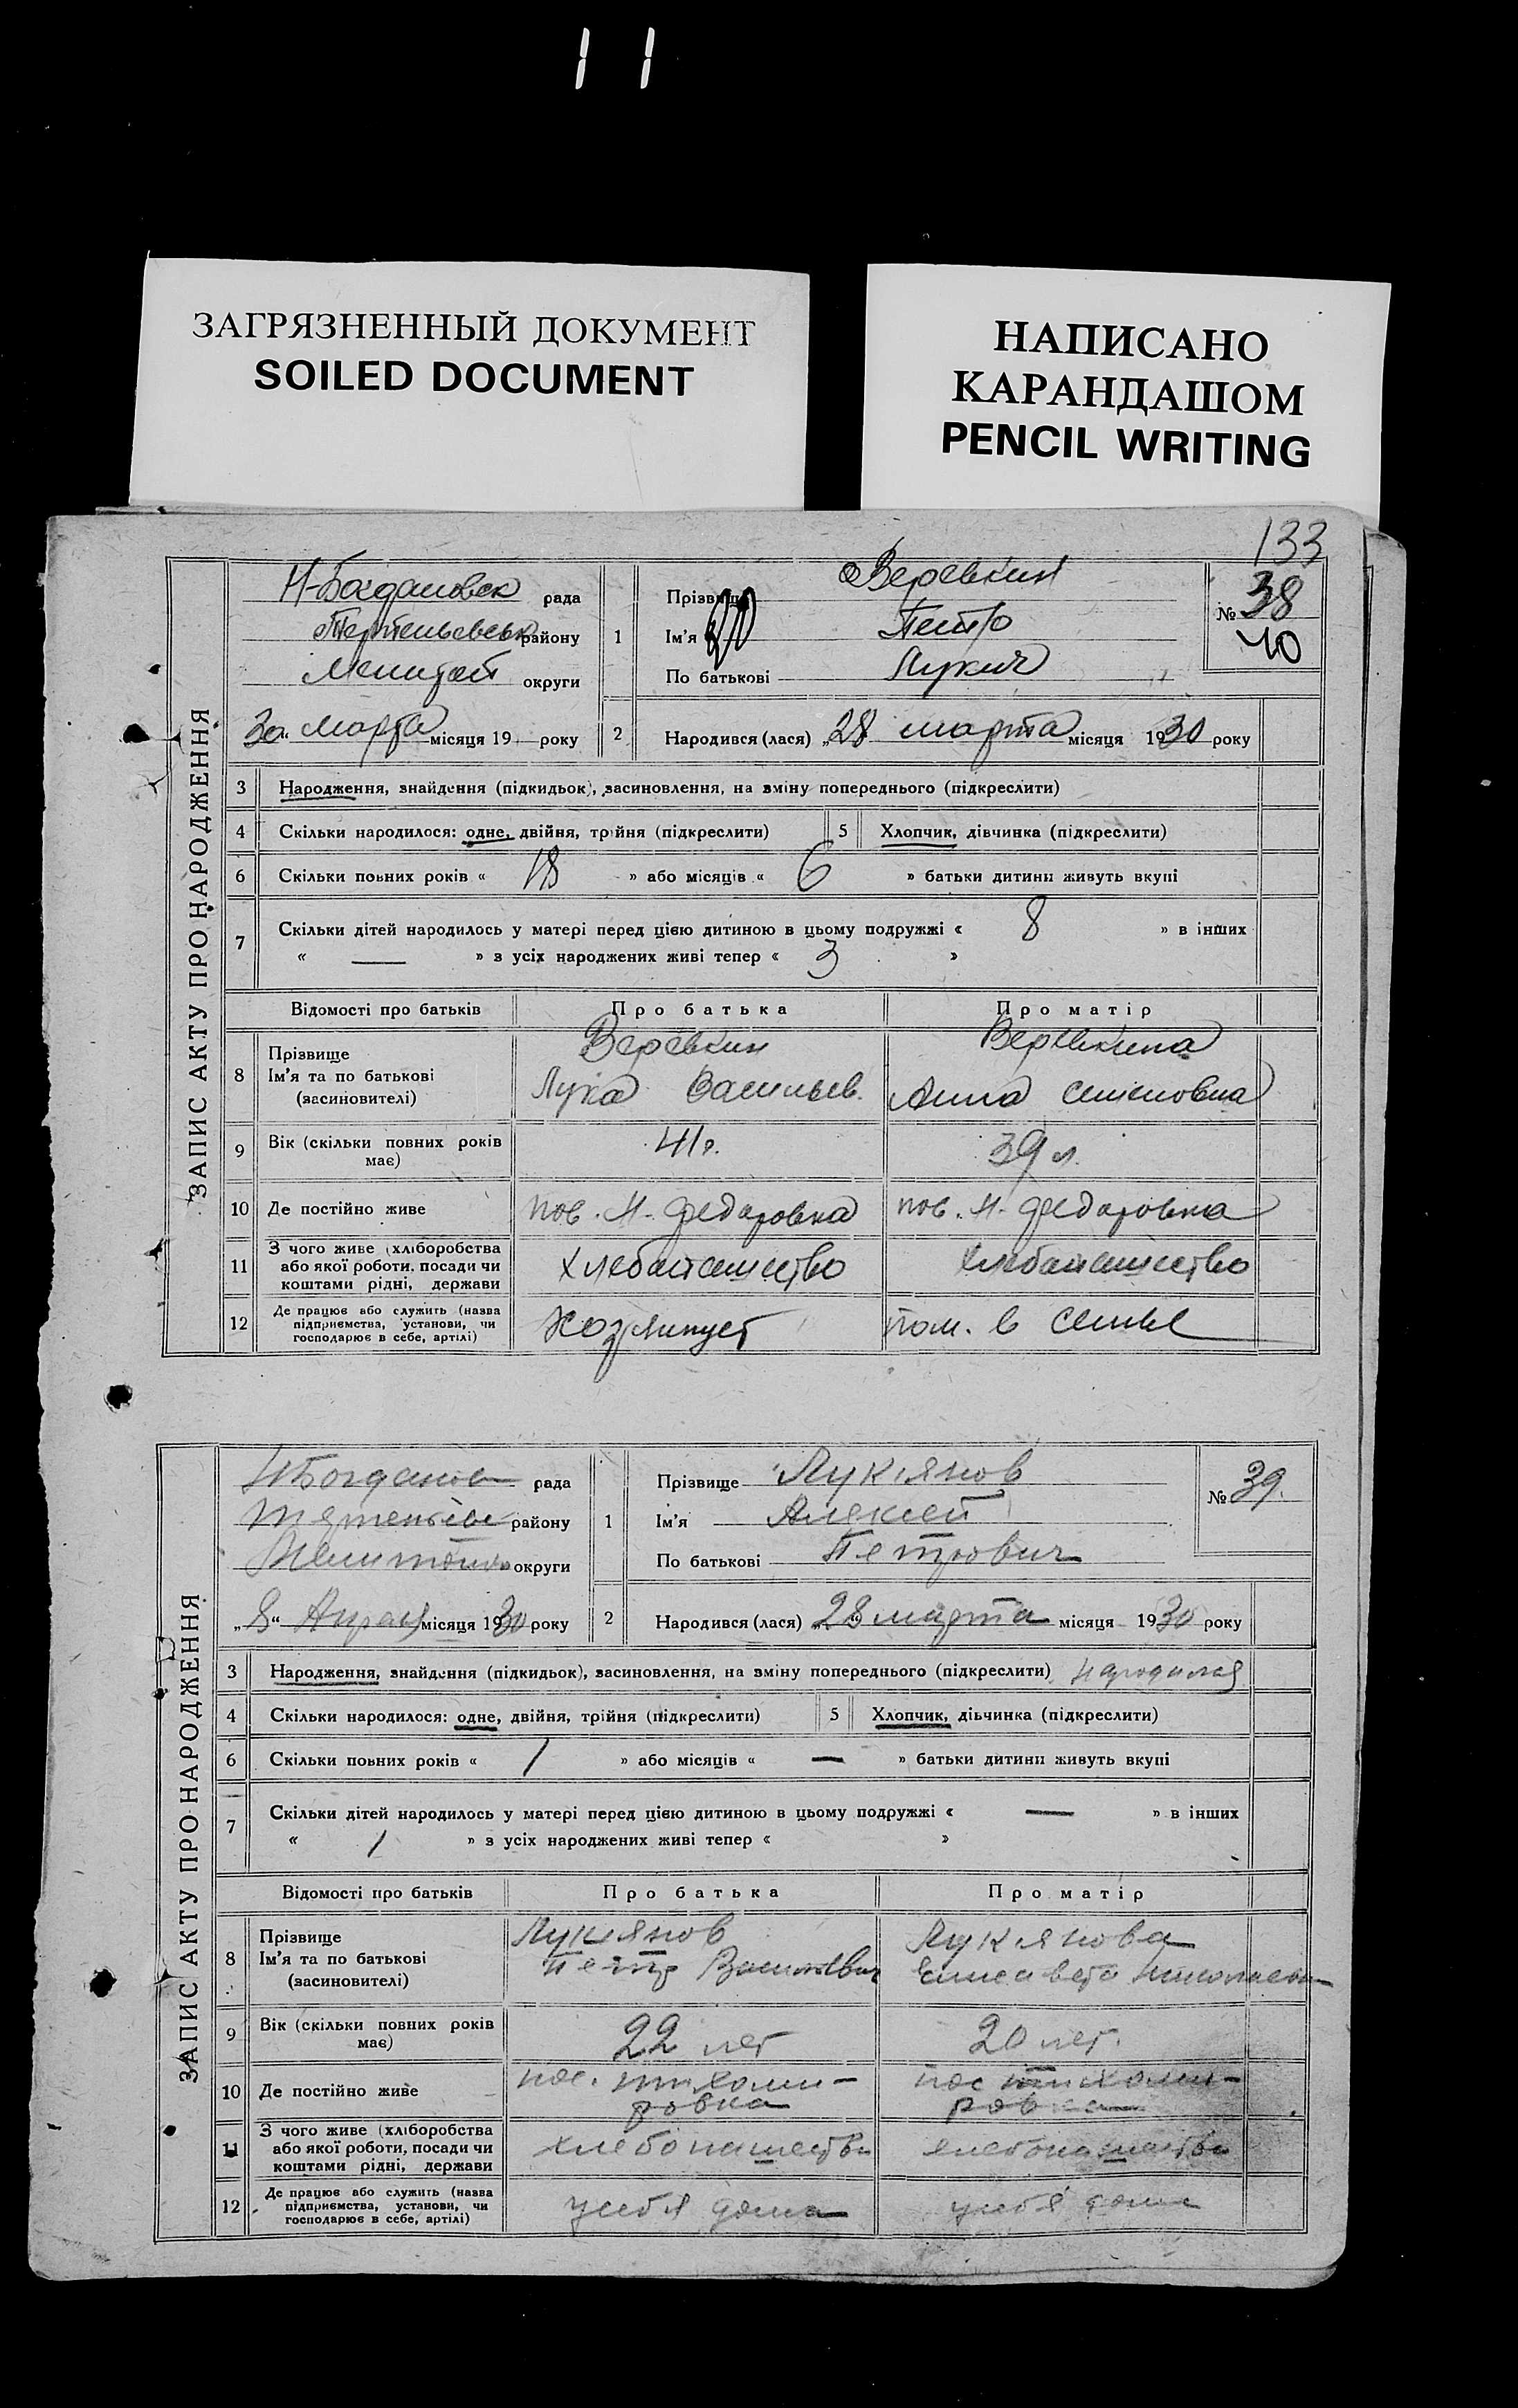 ЗАГРЯЗНЕННЫЙ ДОКУМЕНТ
SOILED DOCUMENT
НАПИСАНО
КАРАНДАШОМ
PENCIL WRITING
133
ЗАПИС АКТУ ПРО НАРОДЖЕННЯ
Н-Богдановск рада
району
Мелитоп округи
30 " марта місяця 19 року
1 Прізвище Веревкин
Ім'я Петро
По батькові Лукич
№ 38
40
2 Народився (лася) „28 марта місяця 1930 року
3 Народження, знайдення (підкидьок), засиновлення, на зміну попереднього (підкреслити)
4 Скільки народилося: одне, двійня, трійня (підкреслити) 5 Хлопчик, дівчинка (підкреслити)
6 Скільки повних років « 18 » або місяців « 6 » батьки дитини живуть вкупі
7 Скільки дітей народилось у матері перед цією дитиною в цьому подружжі « 8 » в інших
« — » з усіх народжених живі тепер « 3 »
Відомості про батьків Про батька Про матір
8 Прізвище Веревкин Веревкина
Ім'я та по батькові Лука Васильев. Анна Семеновна
(засиновителі)
9 Вік (скільки повних років має) 41 г. 39 л.
10 Де постійно живе пос. Н-Федаровка пос. Н-Федаровка
11 З чого живе (хліборобства або якої роботи, посади чи коштами рідні, держави хлебапашество хлебапашество
12 Де працює або служить (назва підприємства, установи, чи господарює в себе, артілі) пом. в семье
ЗАПИС АКТУ ПРО НАРОДЖЕННЯ
НБогданов рада
району
округи
„8" Апрел місяця 1930 року
1 Прізвище Лукянов
Ім'я Алексей
По батькові Петрович
№ 39.
2 Народився (лася) „28 марта місяця 1930 року
3 Народження, знайдення (підкидьок), засиновлення, на зміну попереднього (підкреслити) народился
4 Скільки народилося: одне, двійня, трійня (підкреслити) 5 Хлопчик, дівчинка (підкреслити)
6 Скільки повних років « 1 » або місяців « — » батьки дитини живуть вкупі
7 Скільки дітей народилось у матері перед цією дитиною в цьому подружжі « — » в інших
« 1 » з усіх народжених живі тепер « »
Відомості про батьків Про батька Про матір
8 Прізвище Лукянов Лукянова
Ім'я та по батькові Петр Василевич Елисавета Николаевн
(засиновителі)
9 Вік (скільки повних років має) 22 лет 20 лет.
10 Де постійно живе пос. тихоми-ровка пос тихоми-ровка
11 З чого живе (хліборобства або якої роботи, посади чи коштами рідні, держави хлебопашество хлебопашество
12 Де працює або служить (назва підприємства, установи, чи господарює в себе, артілі) усебя дома усебя дома